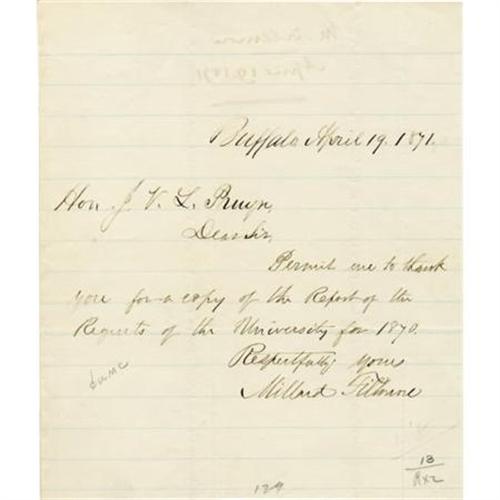 Buffalo April 19. 1871.
Hon. J. V. L. Pruyn,
Dear Sir,
Permit me to thank
you for a copy of the Report of the
Regents of the University for 1870.
Respectfully yours
Millard Fillmore
13
129